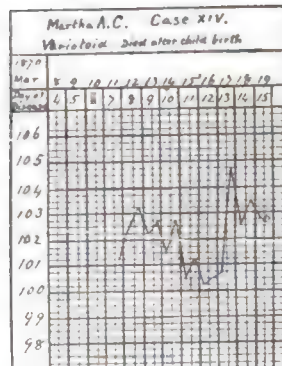 Martha A.C. Case XIV.
Varioloid Died after child birth
1870
Mar 8 9 10 11 12 13 14 15 16 17 18 19
Day of Disease 4 5 7 8 9 10 11 12 13 14 15
106
105
104
103
102
101
100
99
98